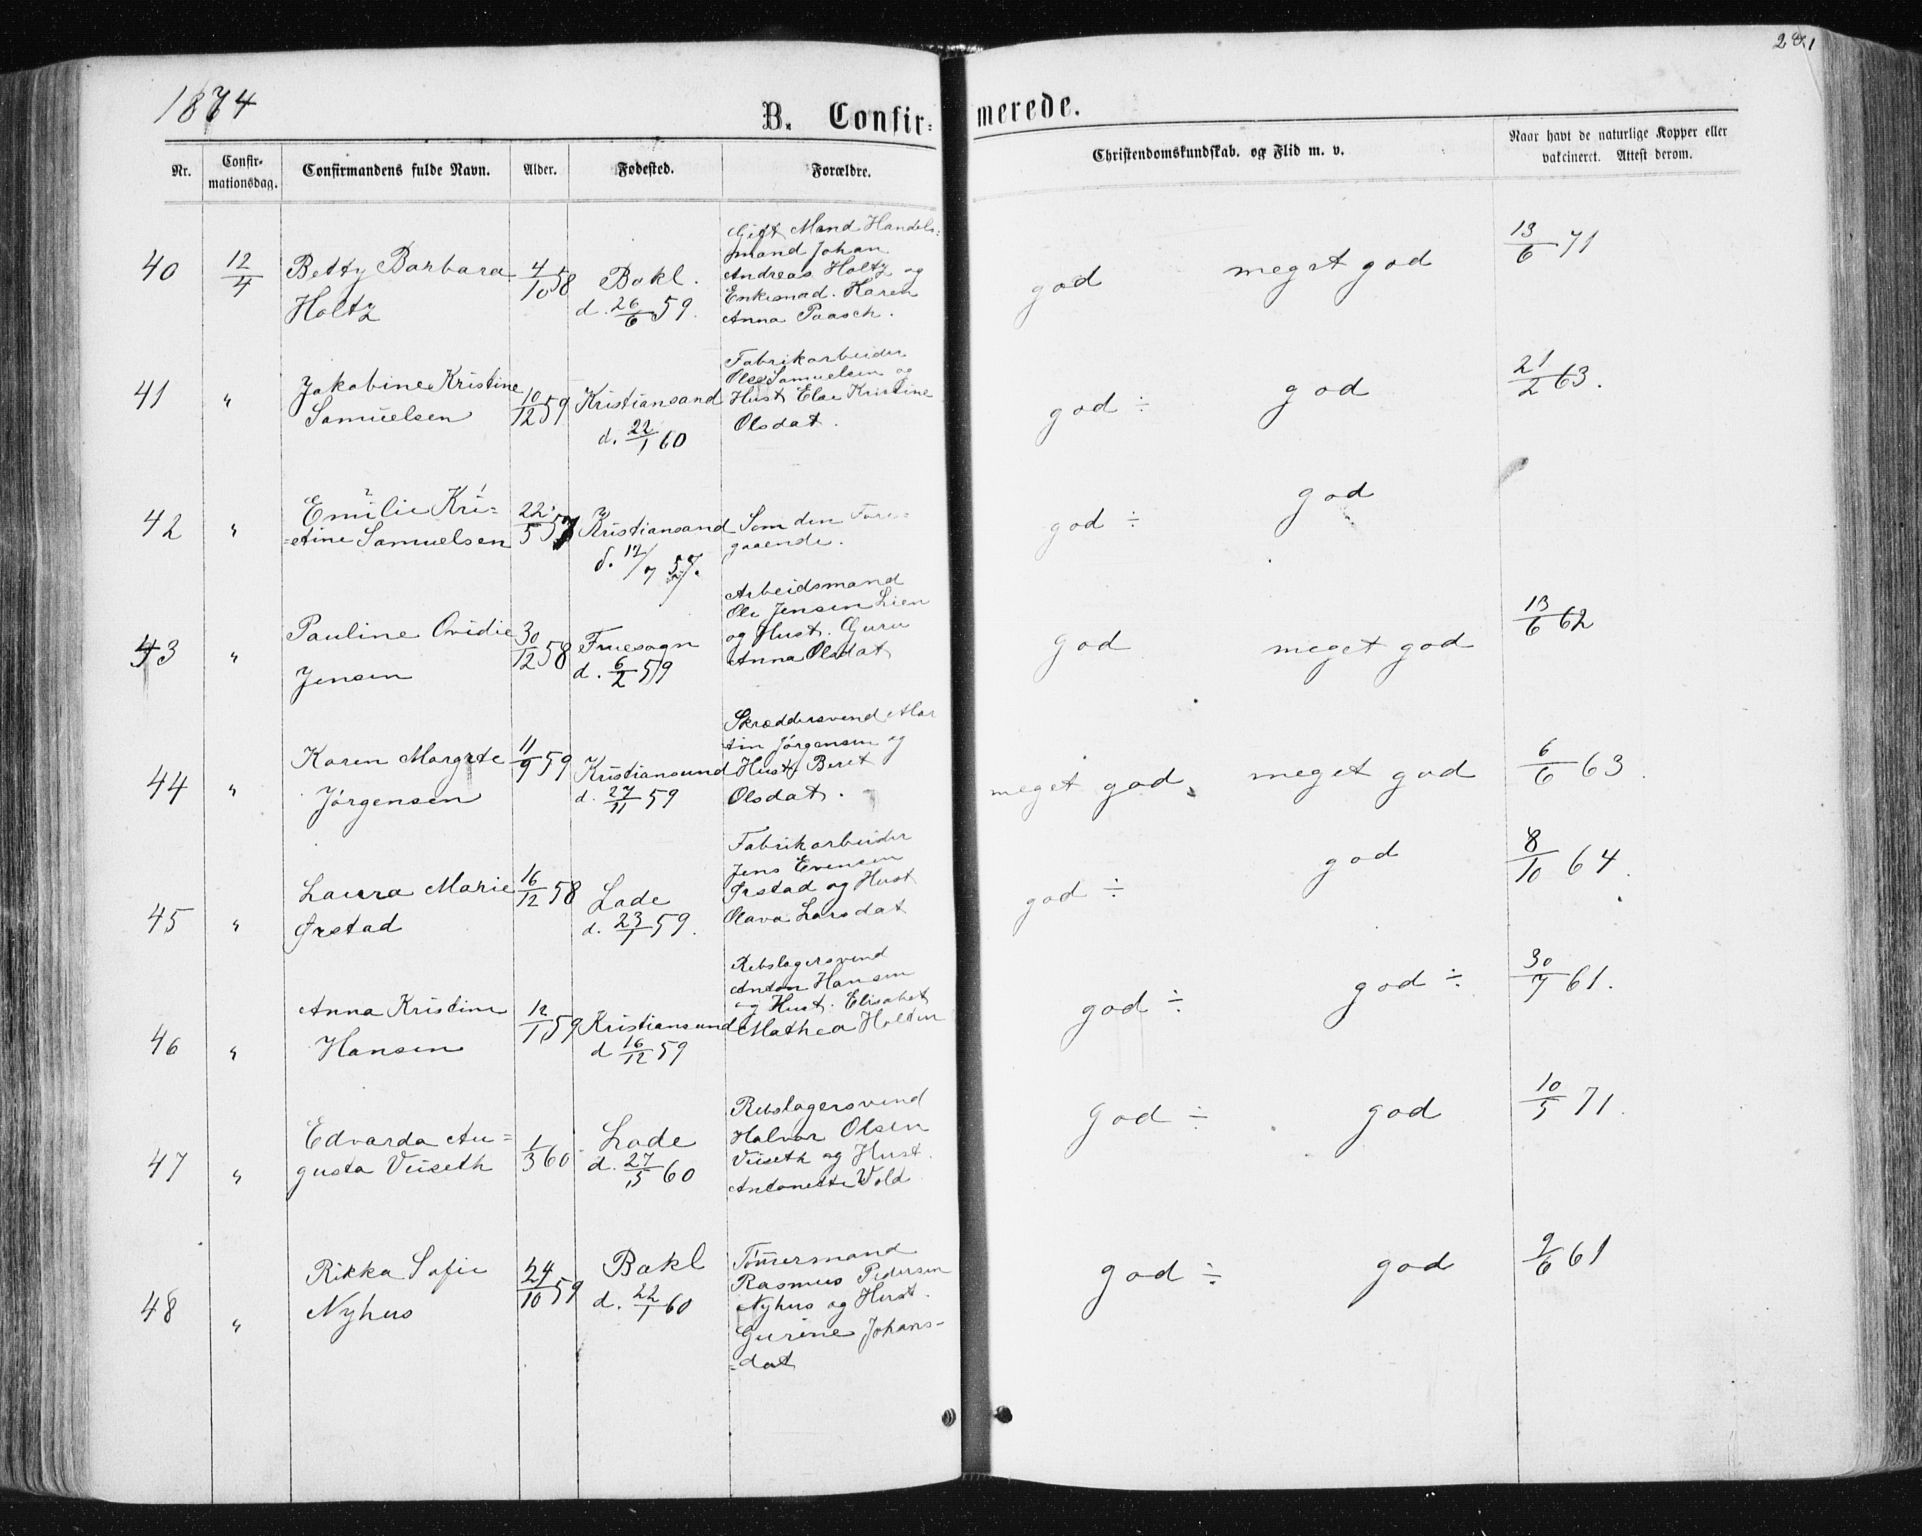 1874
281
B. Confirmerede.
Nr.
Confirmationsdag.
Confirmandens fulde Navn.
Alder.
Fødested.
Forældre.
Christendomskundskab. og Flid m. v.
Naar havt de naturlige Kopper eller
vakcineret. Attest derom.
40
12/4
Betty Barbara
Holtz
4/10 58
Bakl.
d. 26/6 59.
Gift Mand Handels-
mand Johan
Andreas Holtz og
Enkemad. Karen
Anna Paasch.
god
meget god
13/6 71
41
"
Jakobine Kristine
Samuelsen
10/12 59
Kristiansand
d. 22/1 60
Fabrikarbeider
Ole Samuelsen og
Hust Else Kristine
Olsdat.
god ÷
god
21/2 63.
42
"
Emilie Kri-
stine Samuelsen
22/5 57
Kristiansand
d. 12/7 57.
Som den Fore-
gaaende.
god ÷
god
43
"
Pauline Ovidie
Jensen
30/12 58
Fruesogn
d. 6/2 59
Arbeidsmand
Ole Jensen Lien
og Hust. Guru
Anna Olsdat
god
meget god
13/6 62
44
"
Karen Margrete
Jørgensen
11/9 59
Kristiansund
d. 27/11 59
Skræddersvend Mar
tin Jørgensen og
Hust Beret
Olsdat.
meget god
meget god
6/6 63.
45
"
Laura Marie
Ørstad
16/12 58
Lade
d. 23/1 59.
Fabrikarbeider
Jens Evensen
Ørstad og Hust
Olava Larsdat
god ÷
god
8/10 64.
46
"
Anna Kristine
Hansen
12/1 59
Kristiansund
d 16/12 59
Rebslagersvend
Anton Hansen
og Hust. Elisabet
Mathea Holten
god ÷
god ÷
30/7 61.
47
"
Edvarda Au-
gusta Viiseth
1/3 60
Lade
d. 27/5 60
Rebslagersvend
Halvor Olsen
Viiseth og Hust.
Antonette Vold
god ÷
god
10/5 71.
48
"
Rikka Sofie
Nyhus
24/10 59
Bakl
d. 22/1 60
Tømmermand
Rasmus Pedersen
Nyhus og Hust.
Gurine Johans-
=dat
god ÷
god
9/6 61